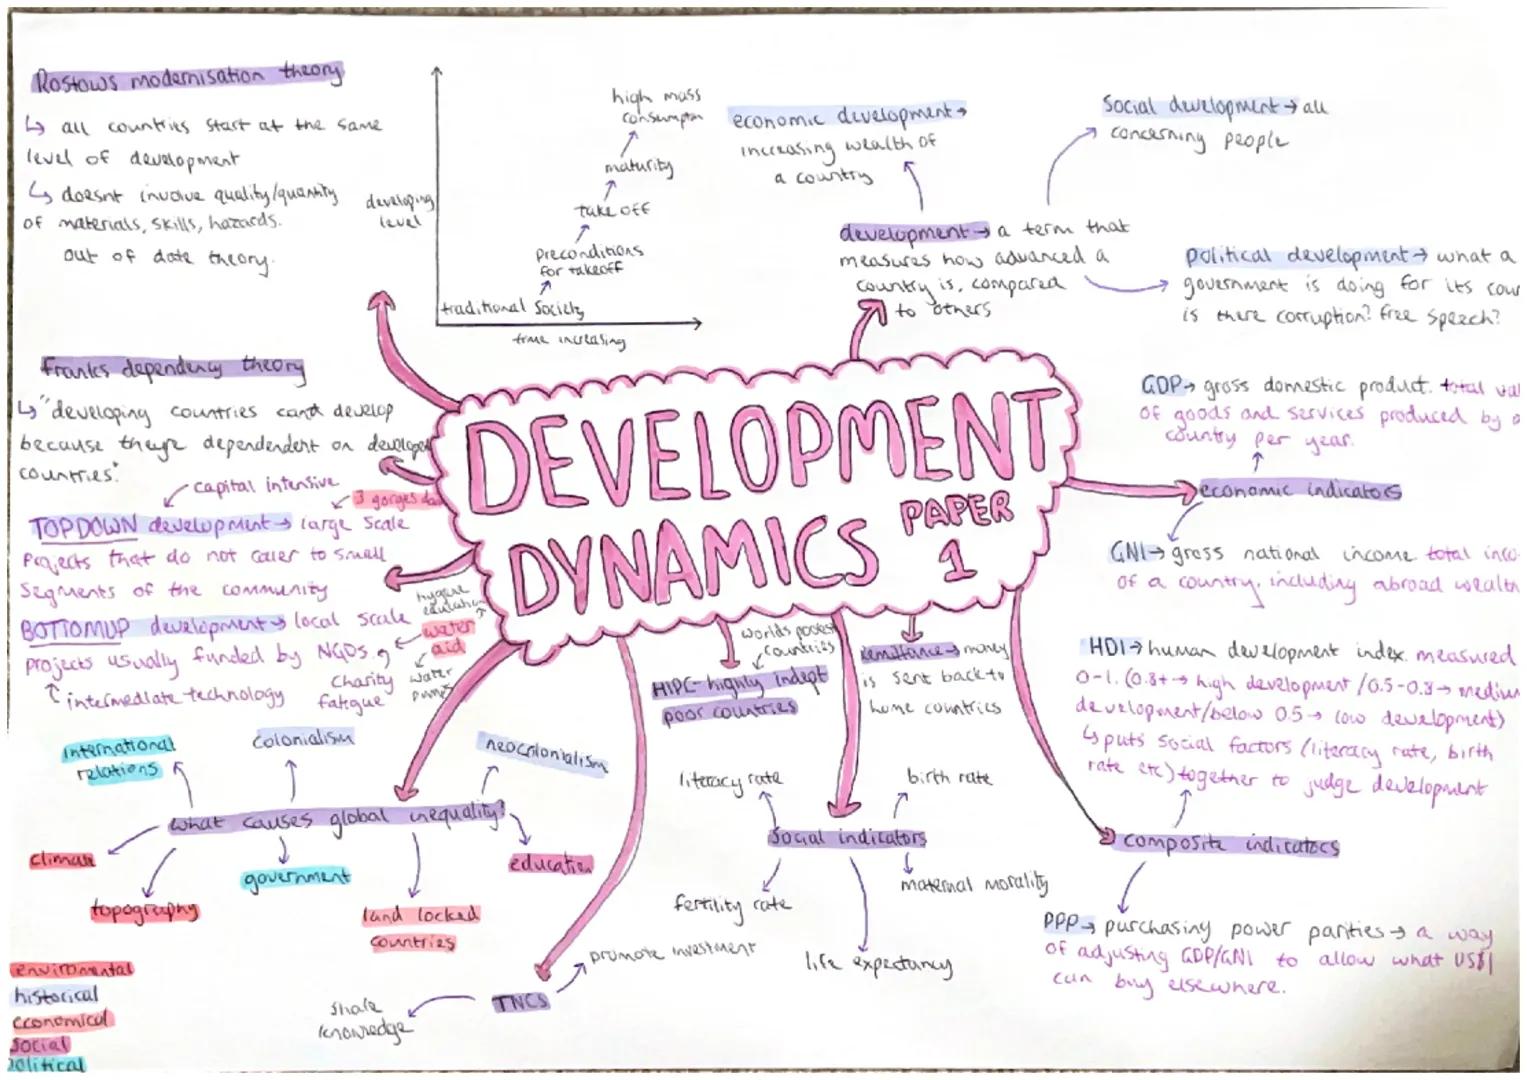 Rostows modernisation theory
↳ all countries start at the same
level of development
↳ doesnt involve quality/quantity
of materials, skills, hazards.
out of date theory.
developing
level
high mass
consumptn
maturity
take off
preconditions
for takeoff
traditional Society
time increasing
economic development →
increasing wealth of
a country
Social development → all
concerning people
development → a term that
measures how advanced a
country is, compared
to others
political development → what a
government is doing for its coun
is there corruption? free speech?
Franks dependency theory
↳ "developing countries cant develop
because theyre dependendent on developed
countries."
capital intensive
3 gorges dam
TOPDOWN development → large scale
projects that do not cater to small
segments of the community
BOTTOMUP development → local scale
projects usually funded by NGOs.
intermediate technology
charity
fatigue
hygiene
education
water
aid
water
pumps
DEVELOPMENT
DYNAMICS
PAPER
1
GDP → gross domestic product. total val
of goods and services produced by a
country per year.
economic indicators
GNI → gross national income total inco
of a country, including abroad wealth
HDI → human development index. measured
0-1. (0.8+ → high development / 0.5-0.8 → medium
development/below 0.5 → low development)
↳ puts social factors (literacy rate, birth
rate etc) together to judge development
composite indicators
PPP → purchasing power parities → a way
of adjusting GDP/GNI to allow what US$1
can buy elsewhere.
worlds poorest
countries
HIPC - highly indept
poor countries
remittance → money
is sent back to
home countries
literacy rate
birth rate
social indicators
fertility rate
maternal morality
life expectancy
international
relations
colonialism
neocolonialism
what causes global inequality?
climate
topography
government
land locked
countries
education
promote investment
share
knowledge
TNCS
enviromental
historical
economical
social
political